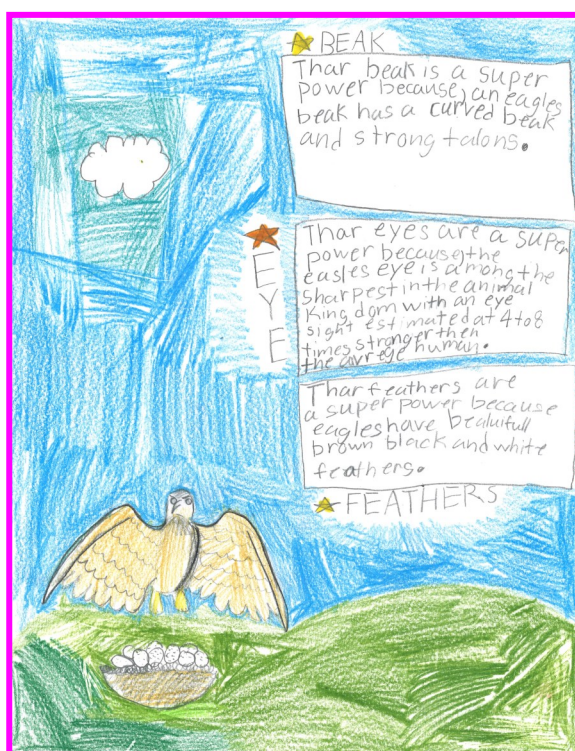 BEAK
Thar beak is a super
power because, an eagles
beak has a curved beak
and strong talons.
EYE
Thar eyes are a super
power because, the
eagles eye is among the
sharpest in the animal
King dom with an eye
sight estimated at 4 to 8
times stronger then
the avrege human.
Thar feathers are
a super power because
eagles have bealuifull
brown black and white
feathers.
FEATHERS